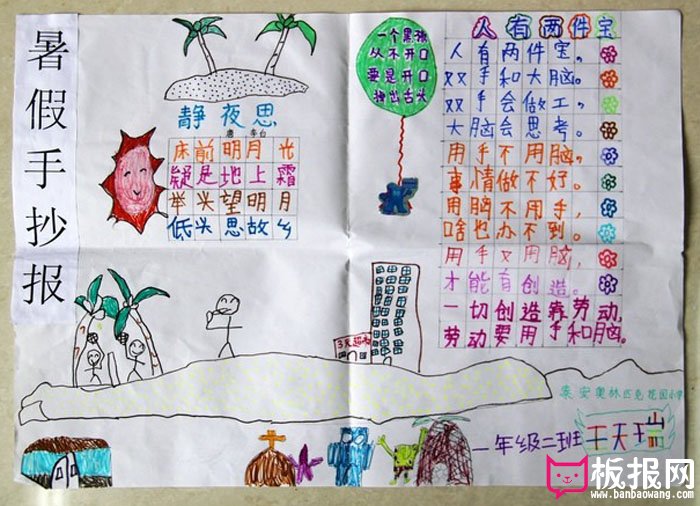 暑假手抄报
静夜思
唐 李白
床前明月光
疑是地上霜
举头望明月
低头思故乡
一个黑孩
从不开口
要是开口
掉出舌头
人有两件宝
人有两件宝。
双手和大脑。
双手会做工,
大脑会思考。
用手不用脑,
事情做不好。
用脑不用手,
啥也办不到。
用手又用脑,
才能有创造。
一切创造靠劳动,
劳动要用手和脑。
泰安奥林匹克花园小学
一年级二班 王天瑞
板报网
www.banbaowang.com